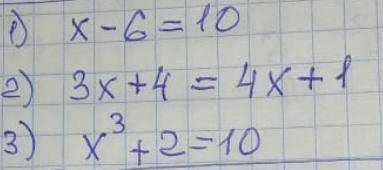 1) x - 6 = 10
2) 3x + 4 = 4x + 1
3) x³ + 2 = 10